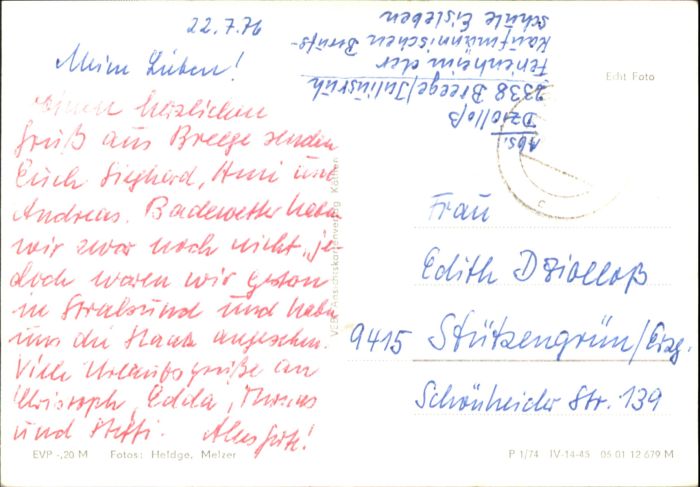 22.7.76
Meine Lieben!
Einen herzlichen
Gruß aus Breege senden
Euch Sieghard, Anni und
Andreas. Badewetter haben
wir zwar noch nicht, je-
doch waren wir gestern
in Stralsund und haben
uns die Stadt angesehen.
Viele Urlaubsgrüße an
Christoph, Edda, Thomas
und Steffi. Alles Gute!
EVP -,20 M Fotos: Heldge, Melzer
Abs.
Dziolloß
2338 Breege/Juliusruh
Ferienheim der
Kaufmännischen Berufs-
schule Eisleben
Edit Foto
Frau
Edith Dziolloß
9415 Stützengrün/Erzg.
Schönheider Str. 139
P 1/74 IV-14-45 05 01 12 679 M